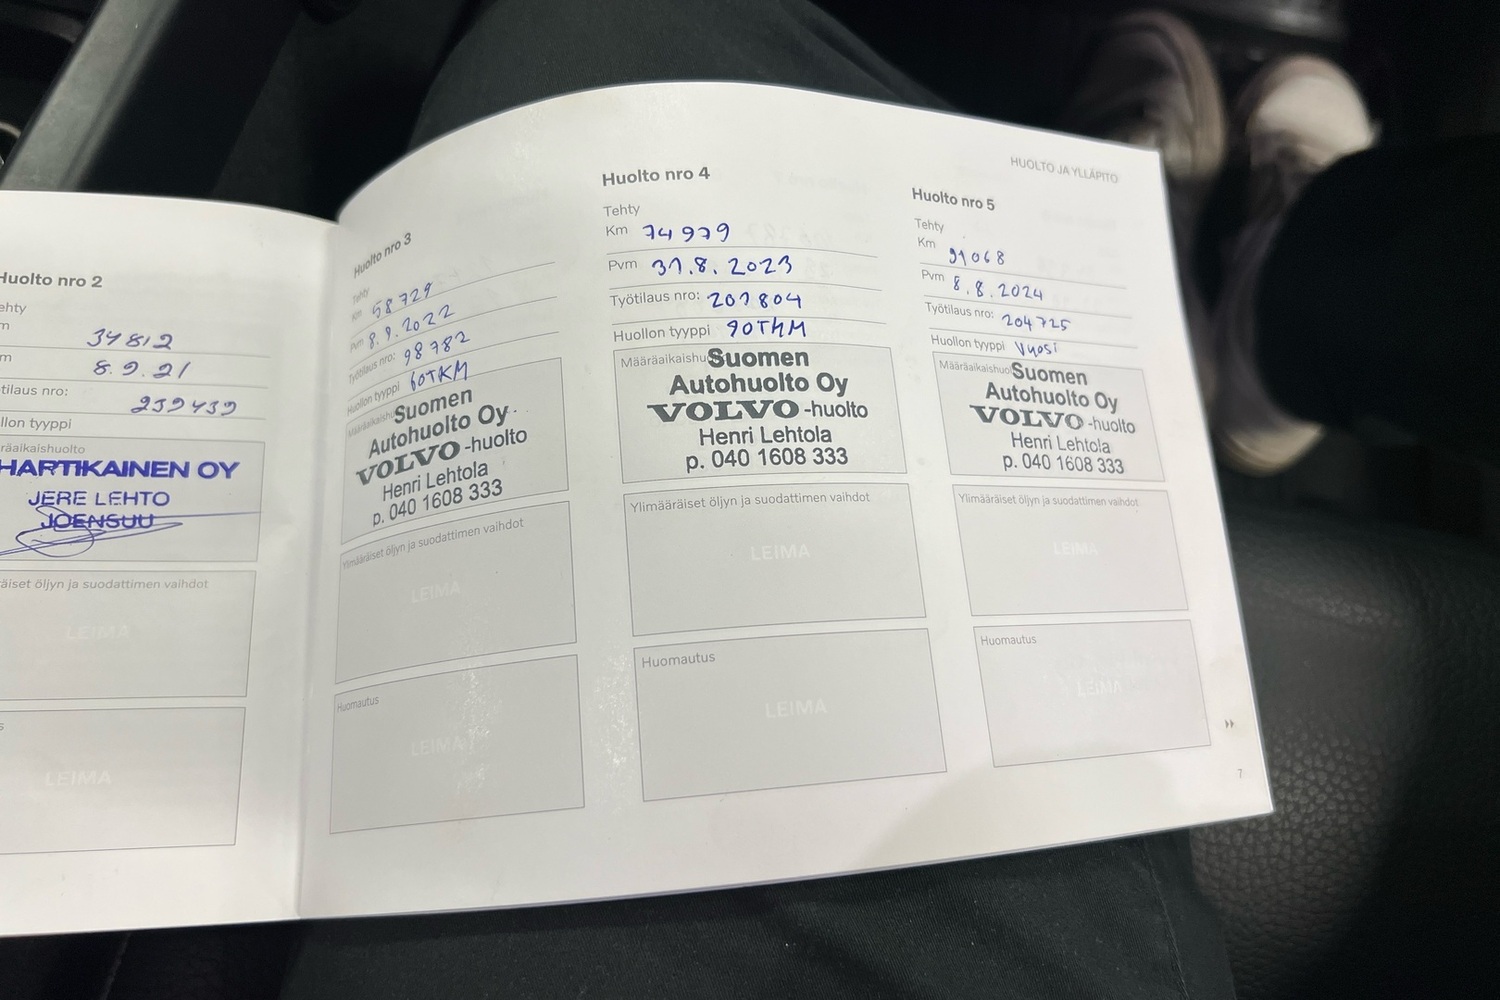 Huolto nro 2
ehty
m 34812
m 8.9.21
tilaus no: 239439
llon tyyppi
räaikaishuolto
HARTIKAINEN OY
JERE LEHTO
JOENSUU
äiset öljyn ja suodattimen vaihdot
LEIMA
s
LEIMA
Huolto nro 3
Tehty
Km 58729
Pvm 8.9.2022
Työtilaus nro: 98782
Huollon tyyppi 60TKM
Määräaikaishu
Suomen
Autohuolto Oy
VOLVO -huolto
Henri Lehtola
p. 040 1608 333
Ylimääräiset öljyn ja suodattimen vaihdot
LEIMA
Huomautus
LEIMA
Huolto nro 4
Tehty
Km 74979
Pvm 31.8.2023
Työtilaus nro: 201804
Huollon tyyppi 90TKM
Määräaikaishu
Suomen
Autohuolto Oy
VOLVO -huolto
Henri Lehtola
p. 040 1608 333
Ylimääräiset öljyn ja suodattimen vaihdot
LEIMA
Huomautus
LEIMA
HUOLTO JA YLLÄPITO
Huolto nro 5
Tehty
Km 91068
Pvm 8.8.2024
Työtilaus nro: 204725
Huollon tyyppi Vuosi
Määräaikaishuo
Suomen
Autohuolto Oy
VOLVO -huolto
Henri Lehtola
p. 040 1608 333
Ylimääräiset öljyn ja suodattimen vaihdot
LEIMA
Huomautus
LEIMA
7